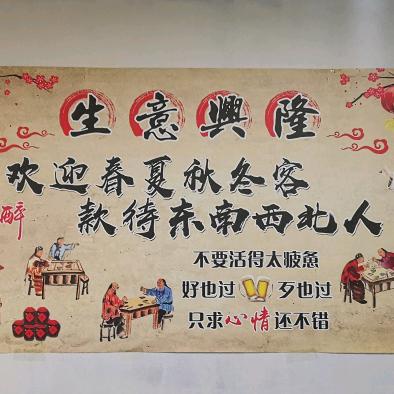 生意興隆
欢迎春夏秋冬客
醉
款待东南西北人
不要活得太疲惫
好也过 歹也过
只求心情还不错